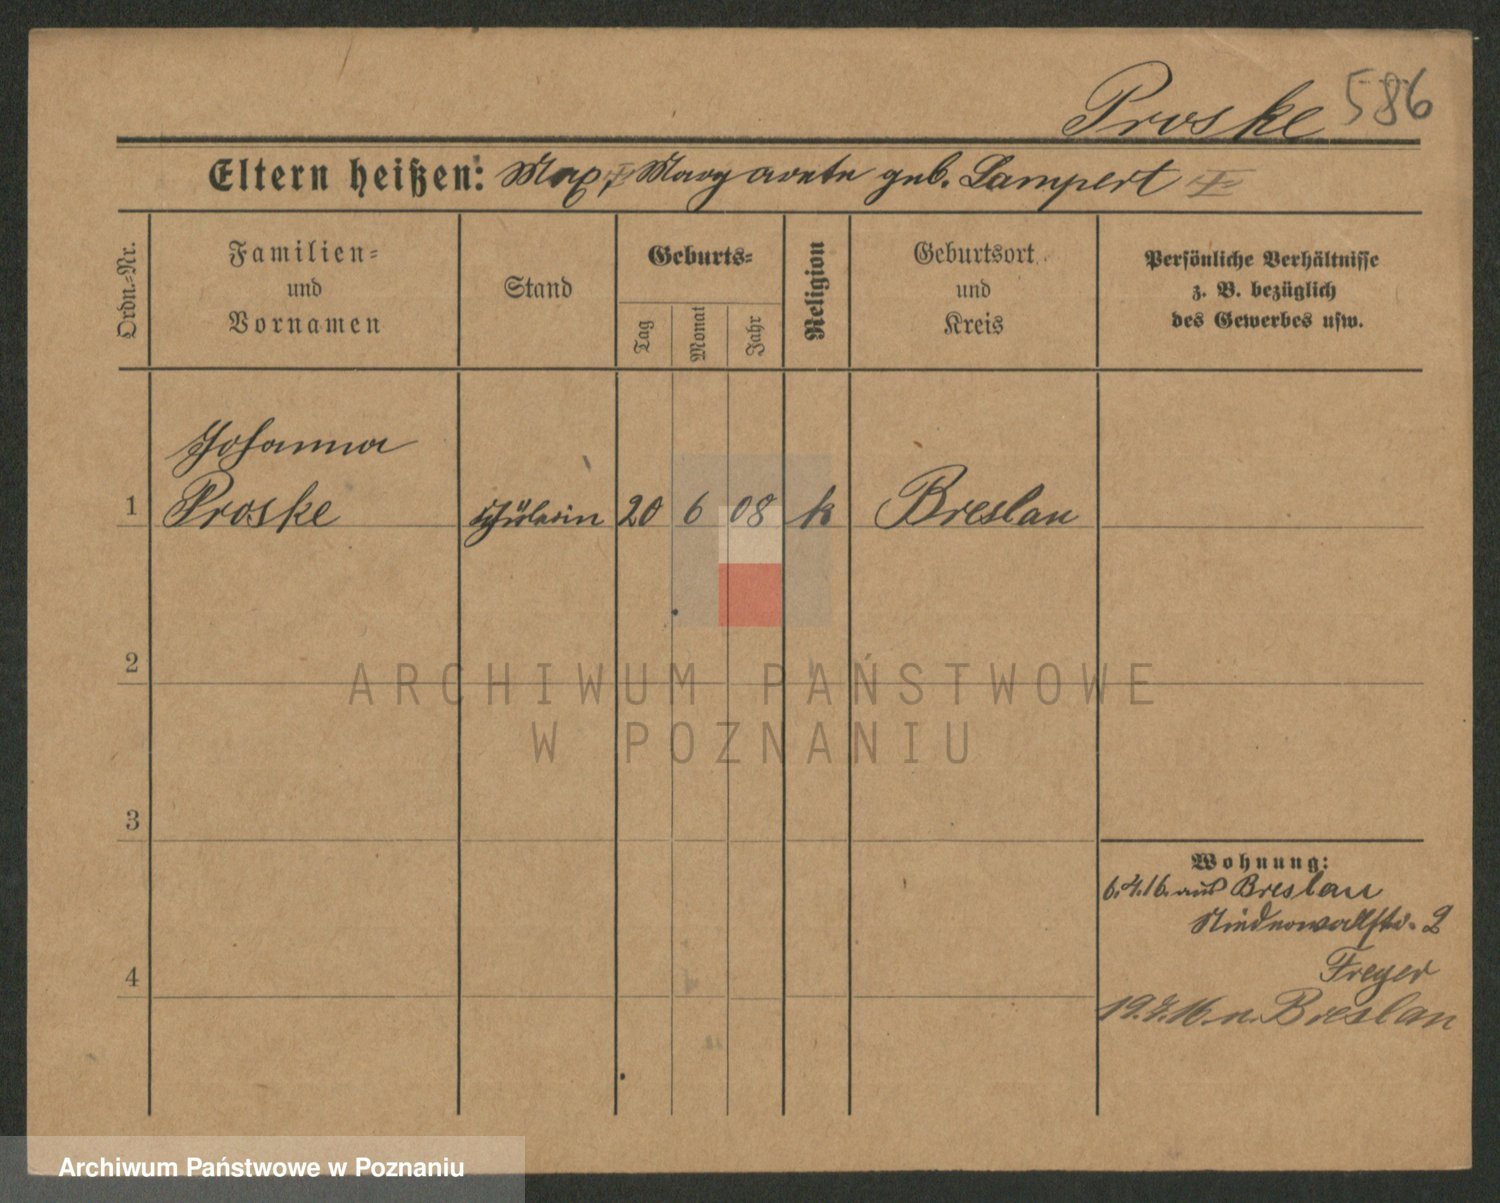 Proske 586
Eltern heißen: Max, Margarete geb. Lampert
Ordn.=Nr.
Familien=
und
Vornamen
Stand
Geburts=
Tag
Monat
Jahr
Religion
Geburtsort
und
Kreis
Persönliche Verhältnisse
z. B. bezüglich
des Gewerbes usw.
Johanna
1 Proske Schülerin 20 6 08 k Breslau
2
ARCHIWUM PAŃSTWOWE
W POZNANIU
3
Wohnung:
6.4.16. aus Breslau
Niederwallstr. 2
Freyer
4
19.7.16. n. Breslau
Archiwum Państwowe w Poznaniu